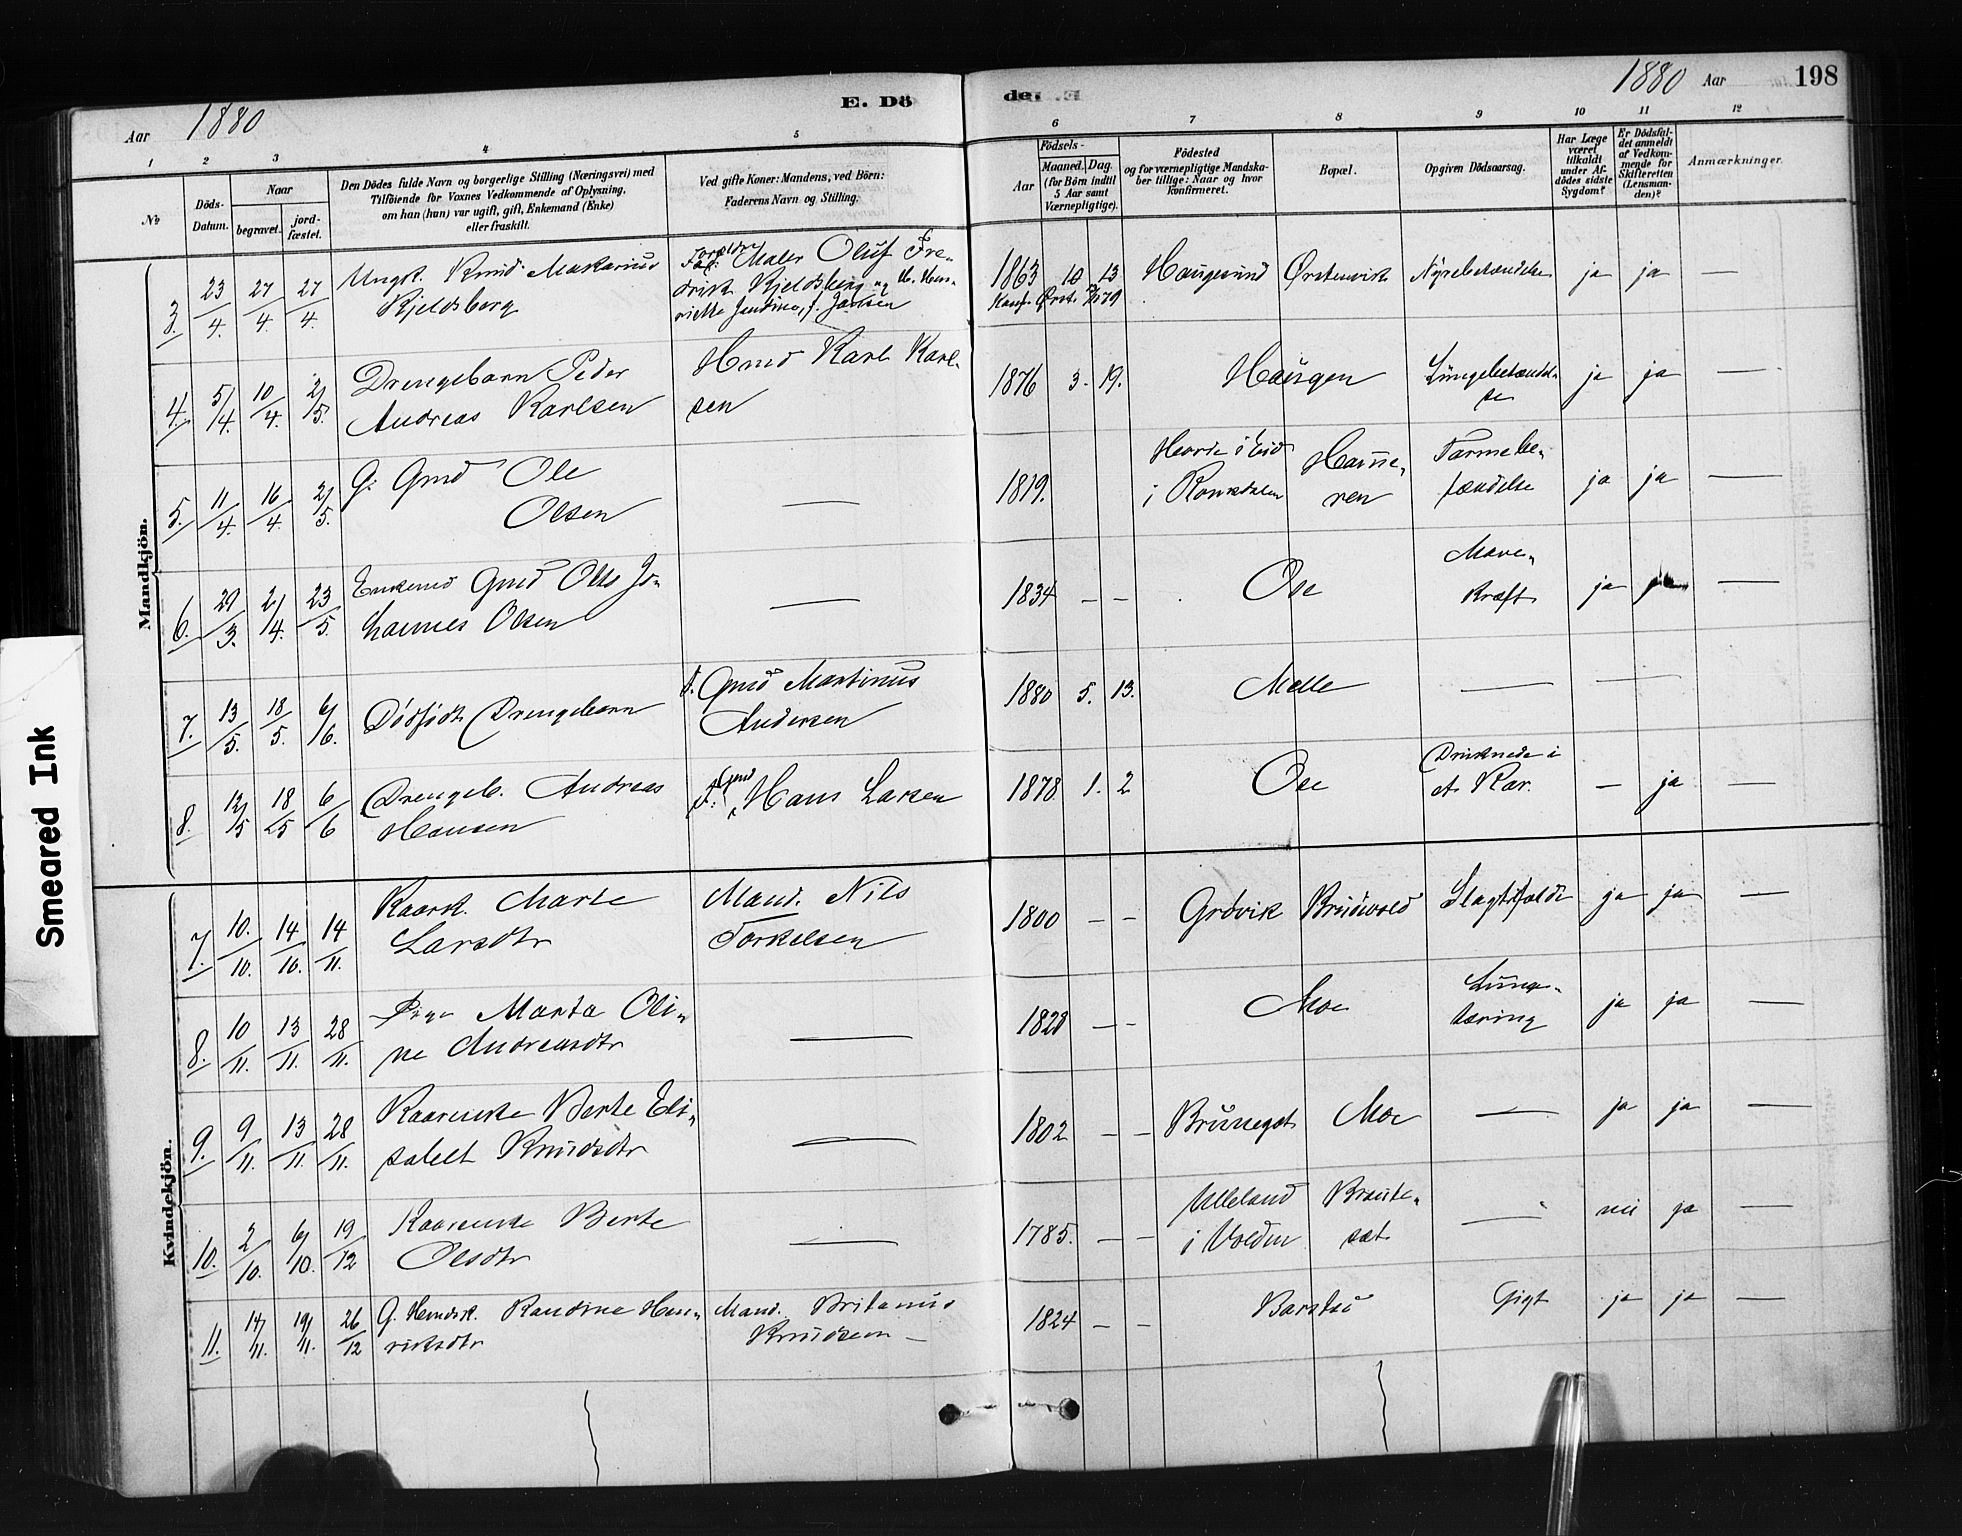 1880 Aar 198
Aar 1880
E. Döde. E
1 2 3 4 5 6 7 8 9 10 11 12
№
Döds-Datum.
Naar
begravet.
jord-fæstet.
Den Dödes fulde Navn og borgerlige Stilling (Næringsvei) med
Tilföiende for Voxnes Vedkommende af Oplysning,
om han (hun) var ugift, gift, Enkemand (Enke)
eller fraskilt.
Ved gifte Koner: Mandens, ved Börn:
Faderens Navn og Stilling.
Födsels-
Aar
Maaned. Dag.
(for Börn indtil
5 Aar samt
Værnepligtige).
Födested
og for værnepligtige Mandska-
ber tillige: Naar og hvor
konfirmeret.
Bopæl.
Opgiven Dödsaarsag.
Har Læge
været
tilkaldt
under Af-
dödes sidste
Sygdom?
Er Dödsfal-
det anmeldt
af Vedkom-
mende for
Skifteretten
(Lensman-
den)?
Anmærkninger.
Mandkjön.
3. 23/4 27/4 27/4 Ungk. Knud Makarius
Kjeldsberg
Forældre Maler Oluf Fre-
drik Kjeldsberg og
1863 10 13 Haugesund Ørstenvik Nyrebetændelse ja ja —
4. 5/4 10/4 2/5 Drengebarn Peder
Andreas Karlsen
Hmd Karl Karl-
sen
1876 3. 19. Haugen Lungebetændel-
se ja ja —
5. 11/4 16/4 2/5 G. Gmd Ole
Olsen
—
1819. i Eid
i Romsdalen Tarmebe-
tændelse ja ja —
6. 29/3. 2/4. 23/5. Enkemd Gmd Ole Jo-
hannes Olsen
—
1834 — — Ose Mave-
kræft ja ja —
7. 13/5. 18/5. 6/6. Dödfödt Drengebarn
f. Gmd Martinus
Andersen
1880 5. 13. Melle — —
8. 12/5 18/5 6/6 Drengeb. Andreas
Hansen
F. Gmd Hans Larsen
1878 1. 2 Ose Druknede i
et Kar. — ja —
Kvindekjön.
7. 10./10. 14/10. 14/11. Kaark. Marte
Larsdtr
Mand. Nils
Torkelsen
1800 — — Grövik Brudevold Slagtilfælde ja ja —
8. 10/11. 13/11. 28/11. Pige Marta Oli-
ne Andreasdtr
—
1828 — — Moe Lunge-
tæring ja ja —
9. 9/11. 13/11. 28/11. Kaarenke Berte Eli-
sabet Knudsdtr
—
1802 — — Bruneset Moe — ja ja —
10. 2/10. 6/10. 19/12 Kaarenke Berte
Olsdtr
—
1785. — — Ulleland
i Volden Braute-
set — nei ja —
11. 14/11. 19/11. 26/12 G. Randine Hen-
riksdtr
Mand. Britanus
Knudsen —
1824 — — Barstad Gigt ja ja —
Smeared Ink